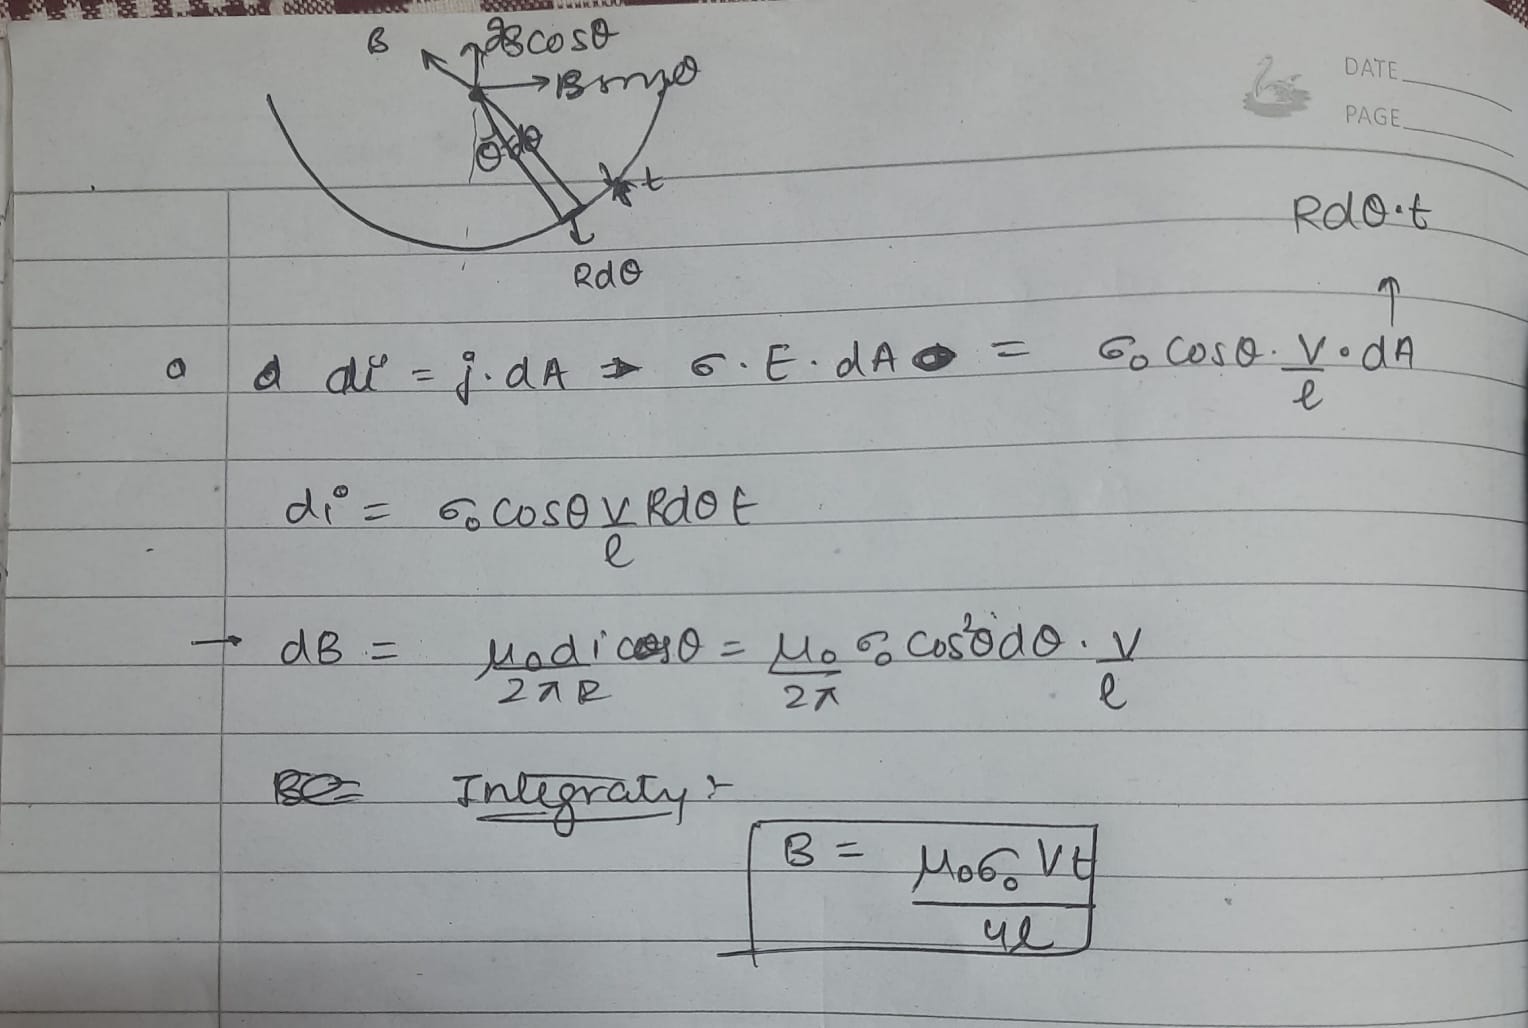 B
B cosθ
B sinθ
DATE
PAGE
θ dθ
t
Rdθ
Rdθ·t
↑
di = j·dA → σ·E·dA = σ₀ cosθ · V/l · dA
di = σ₀ cosθ V/l Rdθ t
→ dB = μ₀ di cosθ / 2πR = μ₀/2π σ₀ cos²θ dθ · V/l
Integraty :-
B = μ₀σ₀Vt / 4l